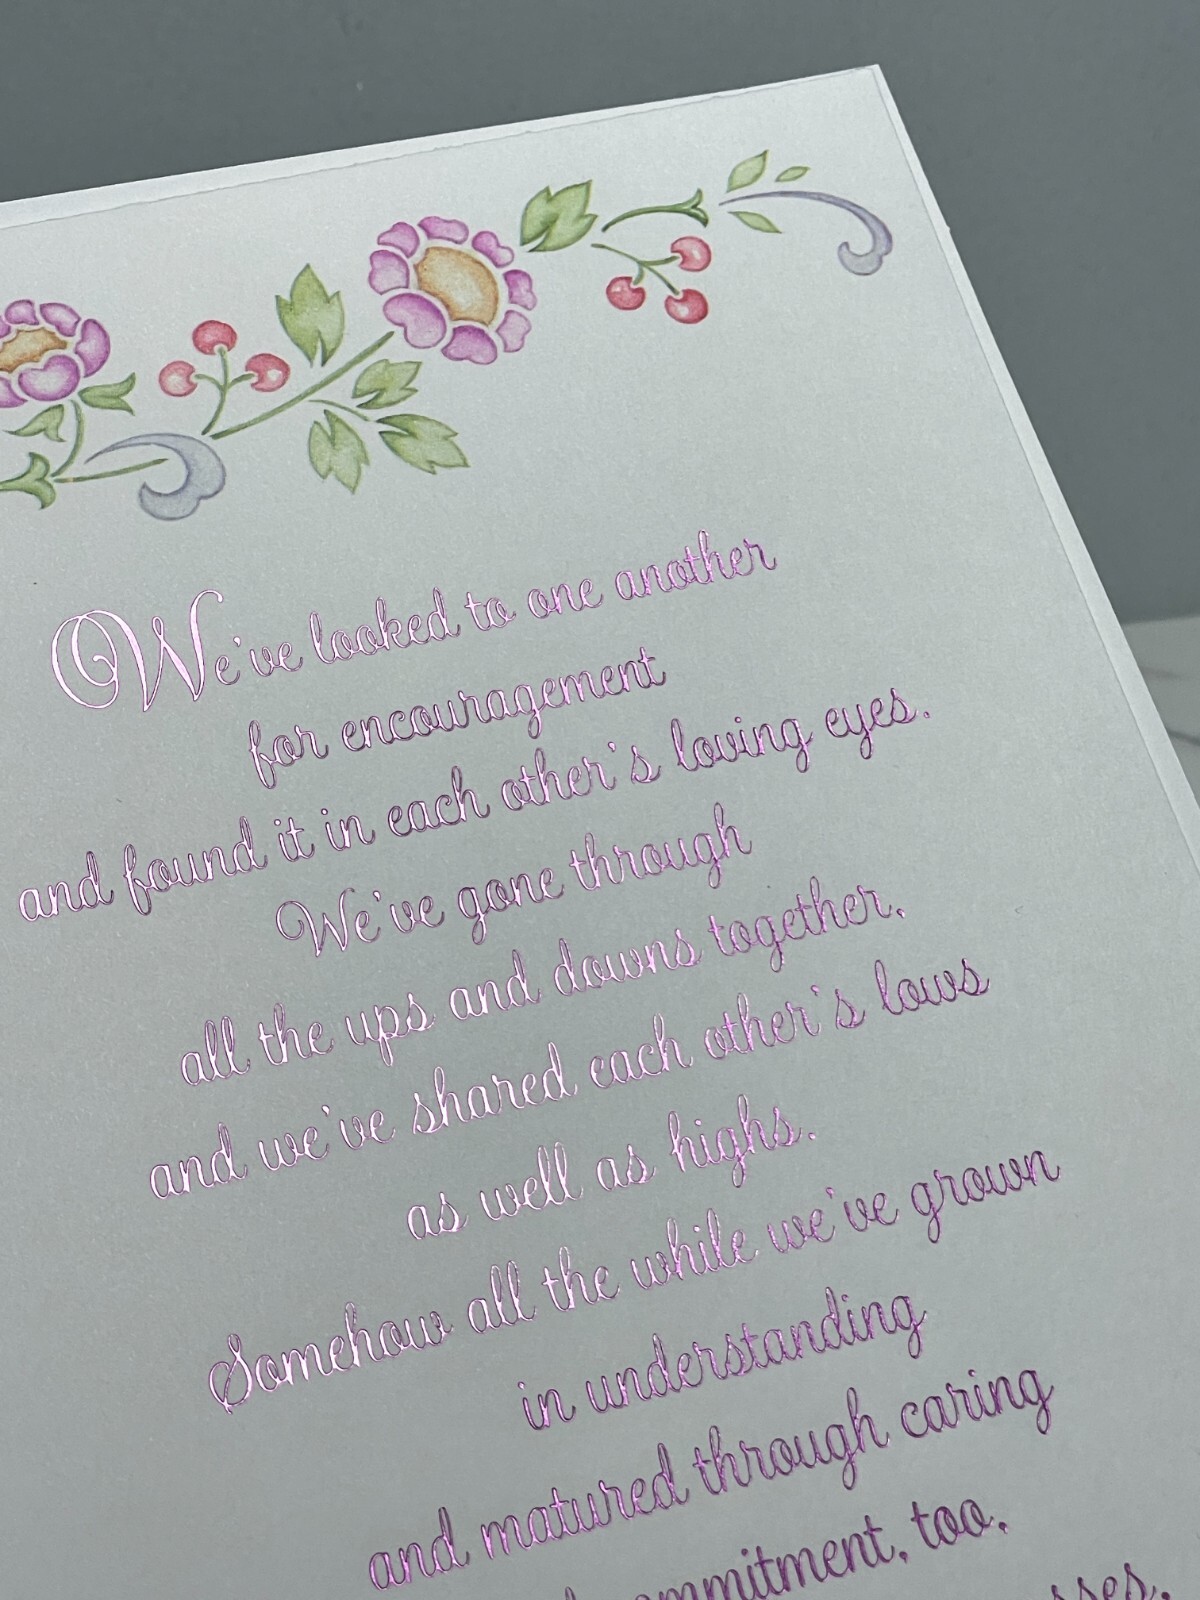 We've looked to one another
for encouragement
and found it in each other's loving eyes.
We've gone through
all the ups and downs together,
and we've shared each other's lows
as well as highs.
Somehow all the while we've grown
in understanding
and matured through caring
commitment, too,